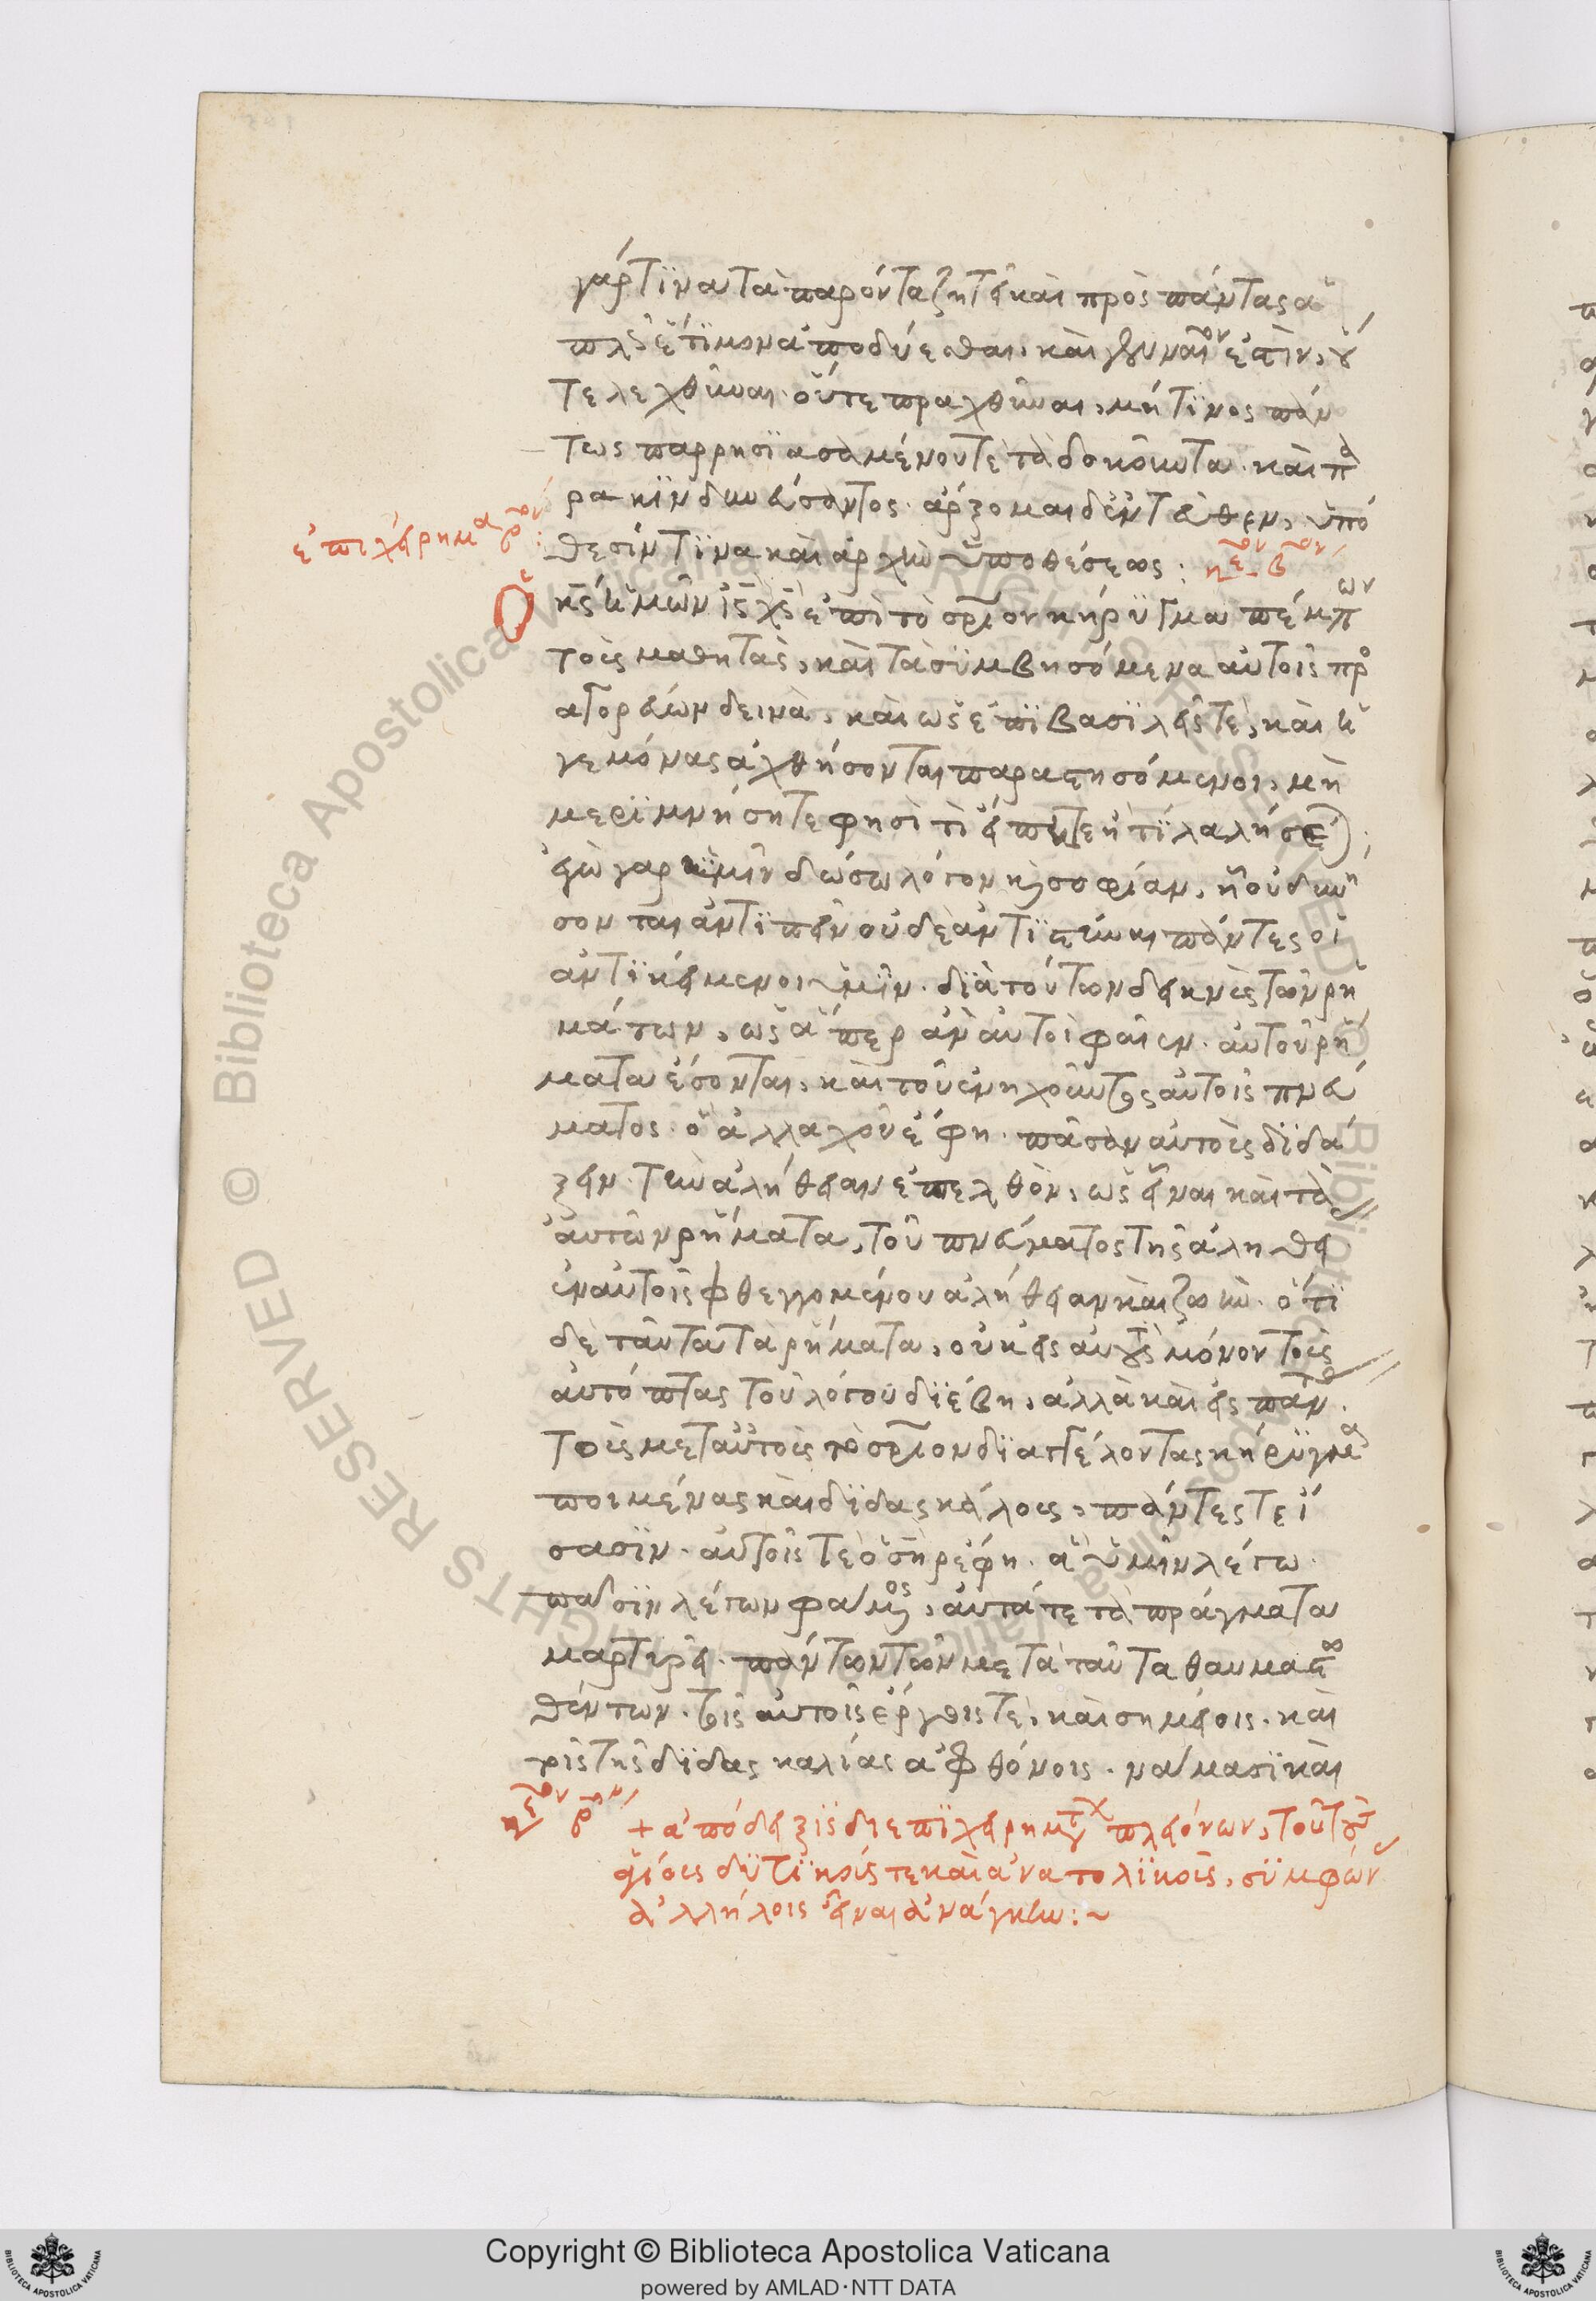 γάρ τινα τὰ παρόντα ζητεῖ καὶ πρὸς πάντας ἁ
πλῶς ἕτοιμον ἀποδύεσθαι, καὶ γενναῖον ἐστὶν, οὔ
τε λεχθῆναι οὔτε πραχθῆναι, μή τινος πάν
τως παρρησιασαμένου τε τὰ δοκοῦντα καὶ πα
ρακινδυνεύσαντος ἄρξομαι δ' ἐντεῦθεν, ὑπό
θεσίν τινα καὶ ἀρχὴν ὑποθέσεως:
ἐπιχείρημα
Ὁ κς ἡμῶν ις χς ἐπὶ τὸ σριον κήρυγμα πέμπων
τοὺς μαθητὰς, καὶ τὰ συμβησόμενα αὐτοῖς προ
αγορεύων δεινὰ, καὶ ὡς ἐπὶ βασιλεῖς τε, καὶ ἡ
γεμόνας ἀχθήσονται παραστησόμενοι, μὴ
μεριμνήσητε φησὶ τί εἴπητε ἢ τί λαλήσετε;
ἐγὼ γαρ ὑμῖν δώσω λόγον κ σοφίαν, ᾗ οὐ δυνή
σονται ἀντιπεῖν οὐδὲ ἀντιστῆναι πάντες οἱ
ἀντικείμενοι ὑμῖν. διὰ τούτων δεικνὺς τῶν ρη
μάτων, ὡς ἅπερ ἂν αὐτοὶ φαῖεν αὐτοῦ ρή
ματα ἔσονται, καὶ τοῦ ἐνηχοῦντος αὐτοῖς πνεύ
ματος ὃ ἀλλαχοῦ ἔφη πᾶσαν αὐτοὺς διδά
ξειν τὴν ἀλήθειαν ἐπελθὸν, ὡς εἶναι καὶ τὰ
αὐτῶν ρήματα, τοῦ πνεύματος τῆς ἀληθεί
ἐν αὐτοῖς φθεγγομένου ἀλήθειαν καὶ ζωὴν ὅτι
δὲ ταῦτα τὰ ρήματα, οὐκ εἰς αὐτοὺς μόνον τοὺς
αὐτόπτας τοῦ λόγου διέβη, ἀλλὰ καὶ εἰς πάντας
τοὺς μετ' αὐτοὺς τὸ σριον διαγγέλοντας κήρυγμα
ποιμένας καὶ διδασκάλους, πάντες τε ἴ
σασιν αὐτοῖς τε ὁ σηρ ἔφη ἃ ὑμῖν λέγω
πᾶσιν λέγων φαμὲν, αὐτά τε τὰ πράγματα
μαρτυρεῖ πάντων τῶν μετὰ ταῦτα θαυμαστω
θέντων τοῖς αὐτοῖς ἔργοις τε, καὶ σημείοις καὶ
τοῖς τῆς διδασκαλίας ἀφθόνοις νάμασι καὶ
+ ἀπόδειξις δι' ἐπιχειρημάτων πλειόνων, τοὺς
ἁγίους δυτικούς τε καὶ ἀνατολικοὺς, συμφών
ἀλλήλοις εἶναι ἀνάγκην:~
Copyright © Biblioteca Apostolica Vaticana
powered by AMLAD·NTT DATA